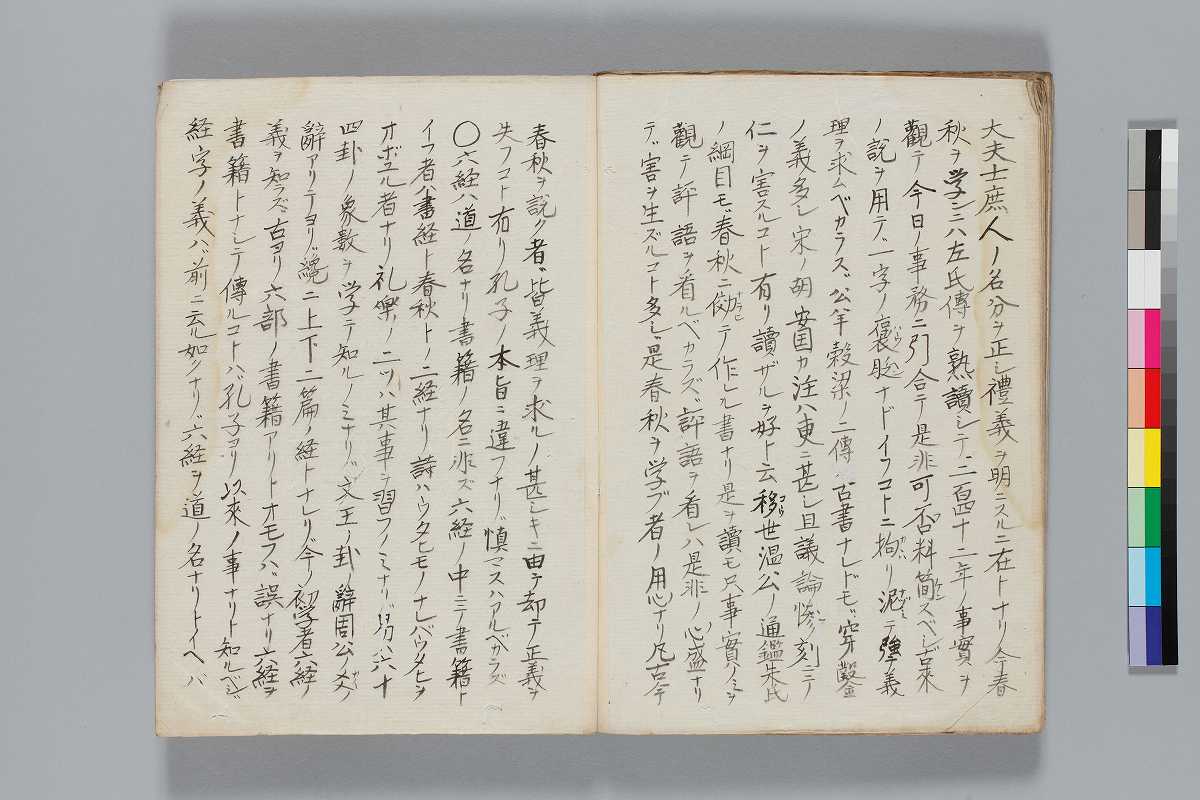 大夫士庶人ノ名分ヲ正シ禮義ヲ明ニスルニ在トナリ今春
秋ヲ学ニハ左氏傳ヲ熟讀シテ二百四十二年ノ事實ヲ
觀テ今日ノ事務ニ引合テ是非可否料簡スベシ古来
ノ説ヲ用テ一字ノ褒貶ナドイフコトニ拘リ泥テ強テ義
理ヲ求ムベカラズ公羊穀梁ノ二傳古書ナレドモ穿鑿
ノ義多シ宋ノ胡安国カ注ハ更ニ甚シ且議論惨刻ニテ
仁ヲ害スルコト有リ讀ザルヲ好ト云移世温公ノ通鑑朱氏
ノ綱目モ春秋ニ倣テ作レル書ナリ是ヲ讀モ只事實ハノミヲ
觀テ評語ヲ看ルベカラズ評語ヲ看レハ是非ノ心盛ナリ
テ害ヲ生ズルコト多シ是春秋ヲ学ブ者ノ用心ナリ凡古今
春秋ヲ説ク者皆義理ヲ求ルノ甚シキニ由テ却テ正義ヲ
失フコト有リ孔子ノ本旨ニ違フナリ慎マスハアルベカラズ
〇六経ハ道ノ名ナリ書籍ノ名ニ非ズ六経ノ中ニテ書籍ト
イフ者ハ書経ト春秋トノ二経ナリ詩ハウタヒモノナレバウタヒヲ
オボユル者ナリ礼樂ノ二ツハ其事ヲ習フノミナリ易ハ六十
四卦ノ象数ヲ学テ知ルノミナリ文王ノ卦ノ辭周公ノ爻ノ
辭アリテヨリ纔ニ上下二篇ノ経トナレリ今ノ初学者六経ノ
義ヲ知ラズ古ヨリ六部ノ書籍アリトオモフハ誤ナリ六経ヲ
書籍トナシテ傳ルコトハ孔子ヨリ以來ノ事ナリト知ルベシ
経字ノ義ハ前ニ云ル如クナリ六経ヲ道ノ名ナリトイヘバ